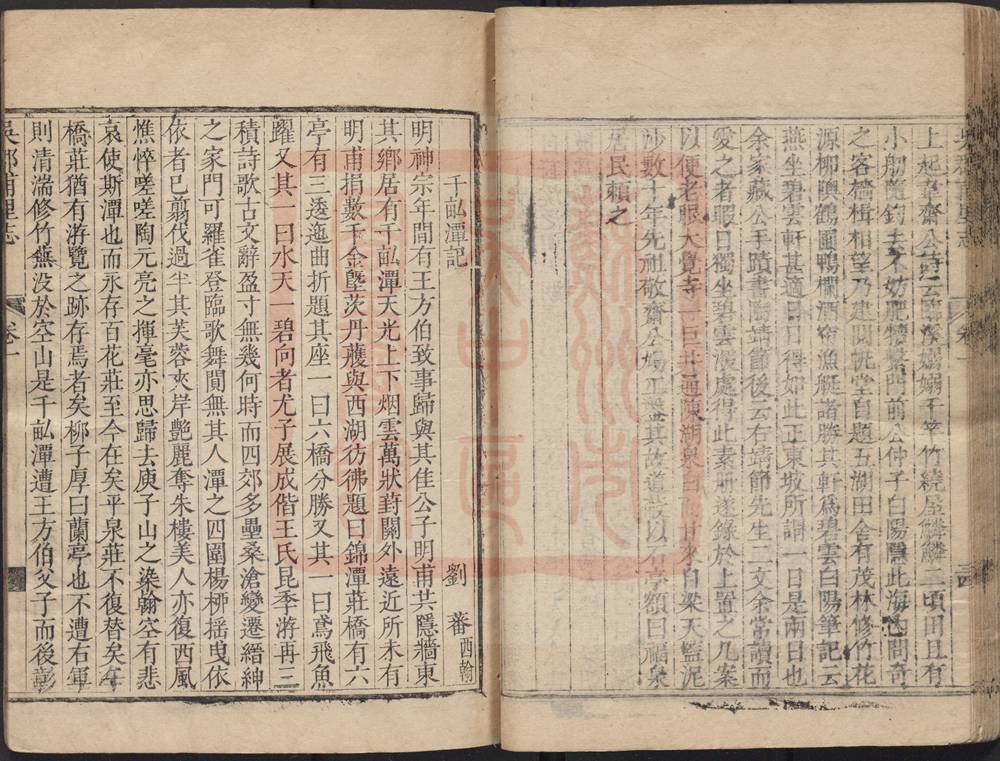 上起孚齋公詩云千竿竹繞屋鱗鱗二頃田且有
小舠隨釣去不妨肥犢前公仲子白陽隱此海內問奇
之客檣楫相望乃建閱帆堂自題五湖田舍有茂林修竹花
源柳隩鶴圃鴨欄酒帘漁艇諸勝其軒爲碧雲白陽筆記云
燕坐碧雲軒甚適日日得如此正東坡所謂一日是兩日也
余家藏公手蹟書陶靖節後云右靖節先生二文余常讀而
愛之者暇日獨坐碧雲漫處得此素冊遂錄於上置之几案
以便老眼大覺寺一巨井通陳湖泉白而甘來自梁天監泥
沙數十年先祖敬齋公以石亭額曰福泉
居民賴之
千畝潭記
劉蕃西翰
明神宗年間有王方伯致事歸與其佳公子明甫共隱牆東
其鄉居有千畝潭天光上下烟雲萬狀葑關外遠近所未有
明甫捐數千金墍茨丹雘與西湖彷彿題曰錦潭莊橋有六
亭有三透迤曲折題其座一曰六橋分勝又其一曰鳶飛魚
躍又其一曰水天一碧向者尤子展成偕王氏昆季游再三
積詩歌古文辭盈寸無幾何時而四郊多壘桑滄變遷縉紳
之家門可羅雀登臨歌舞闃無其人潭之四圍楊柳摇曳依
依者已翦伐過半其芙蓉夾岸艷麗奪朱樓美人亦復西風
憔悴嗟嗟陶元亮之揮毫亦思歸去庾子山之染翰空有悲
哀使斯潭也而永存百花莊至今在矣平泉莊不復替矣午
橋莊猶有游覽之跡存焉者矣柳子厚曰蘭亭也不遭右軍
則清湍修竹蕪没於空山是千畝潭遭王方伯父子而後彰
吳郡甫里志
卷一